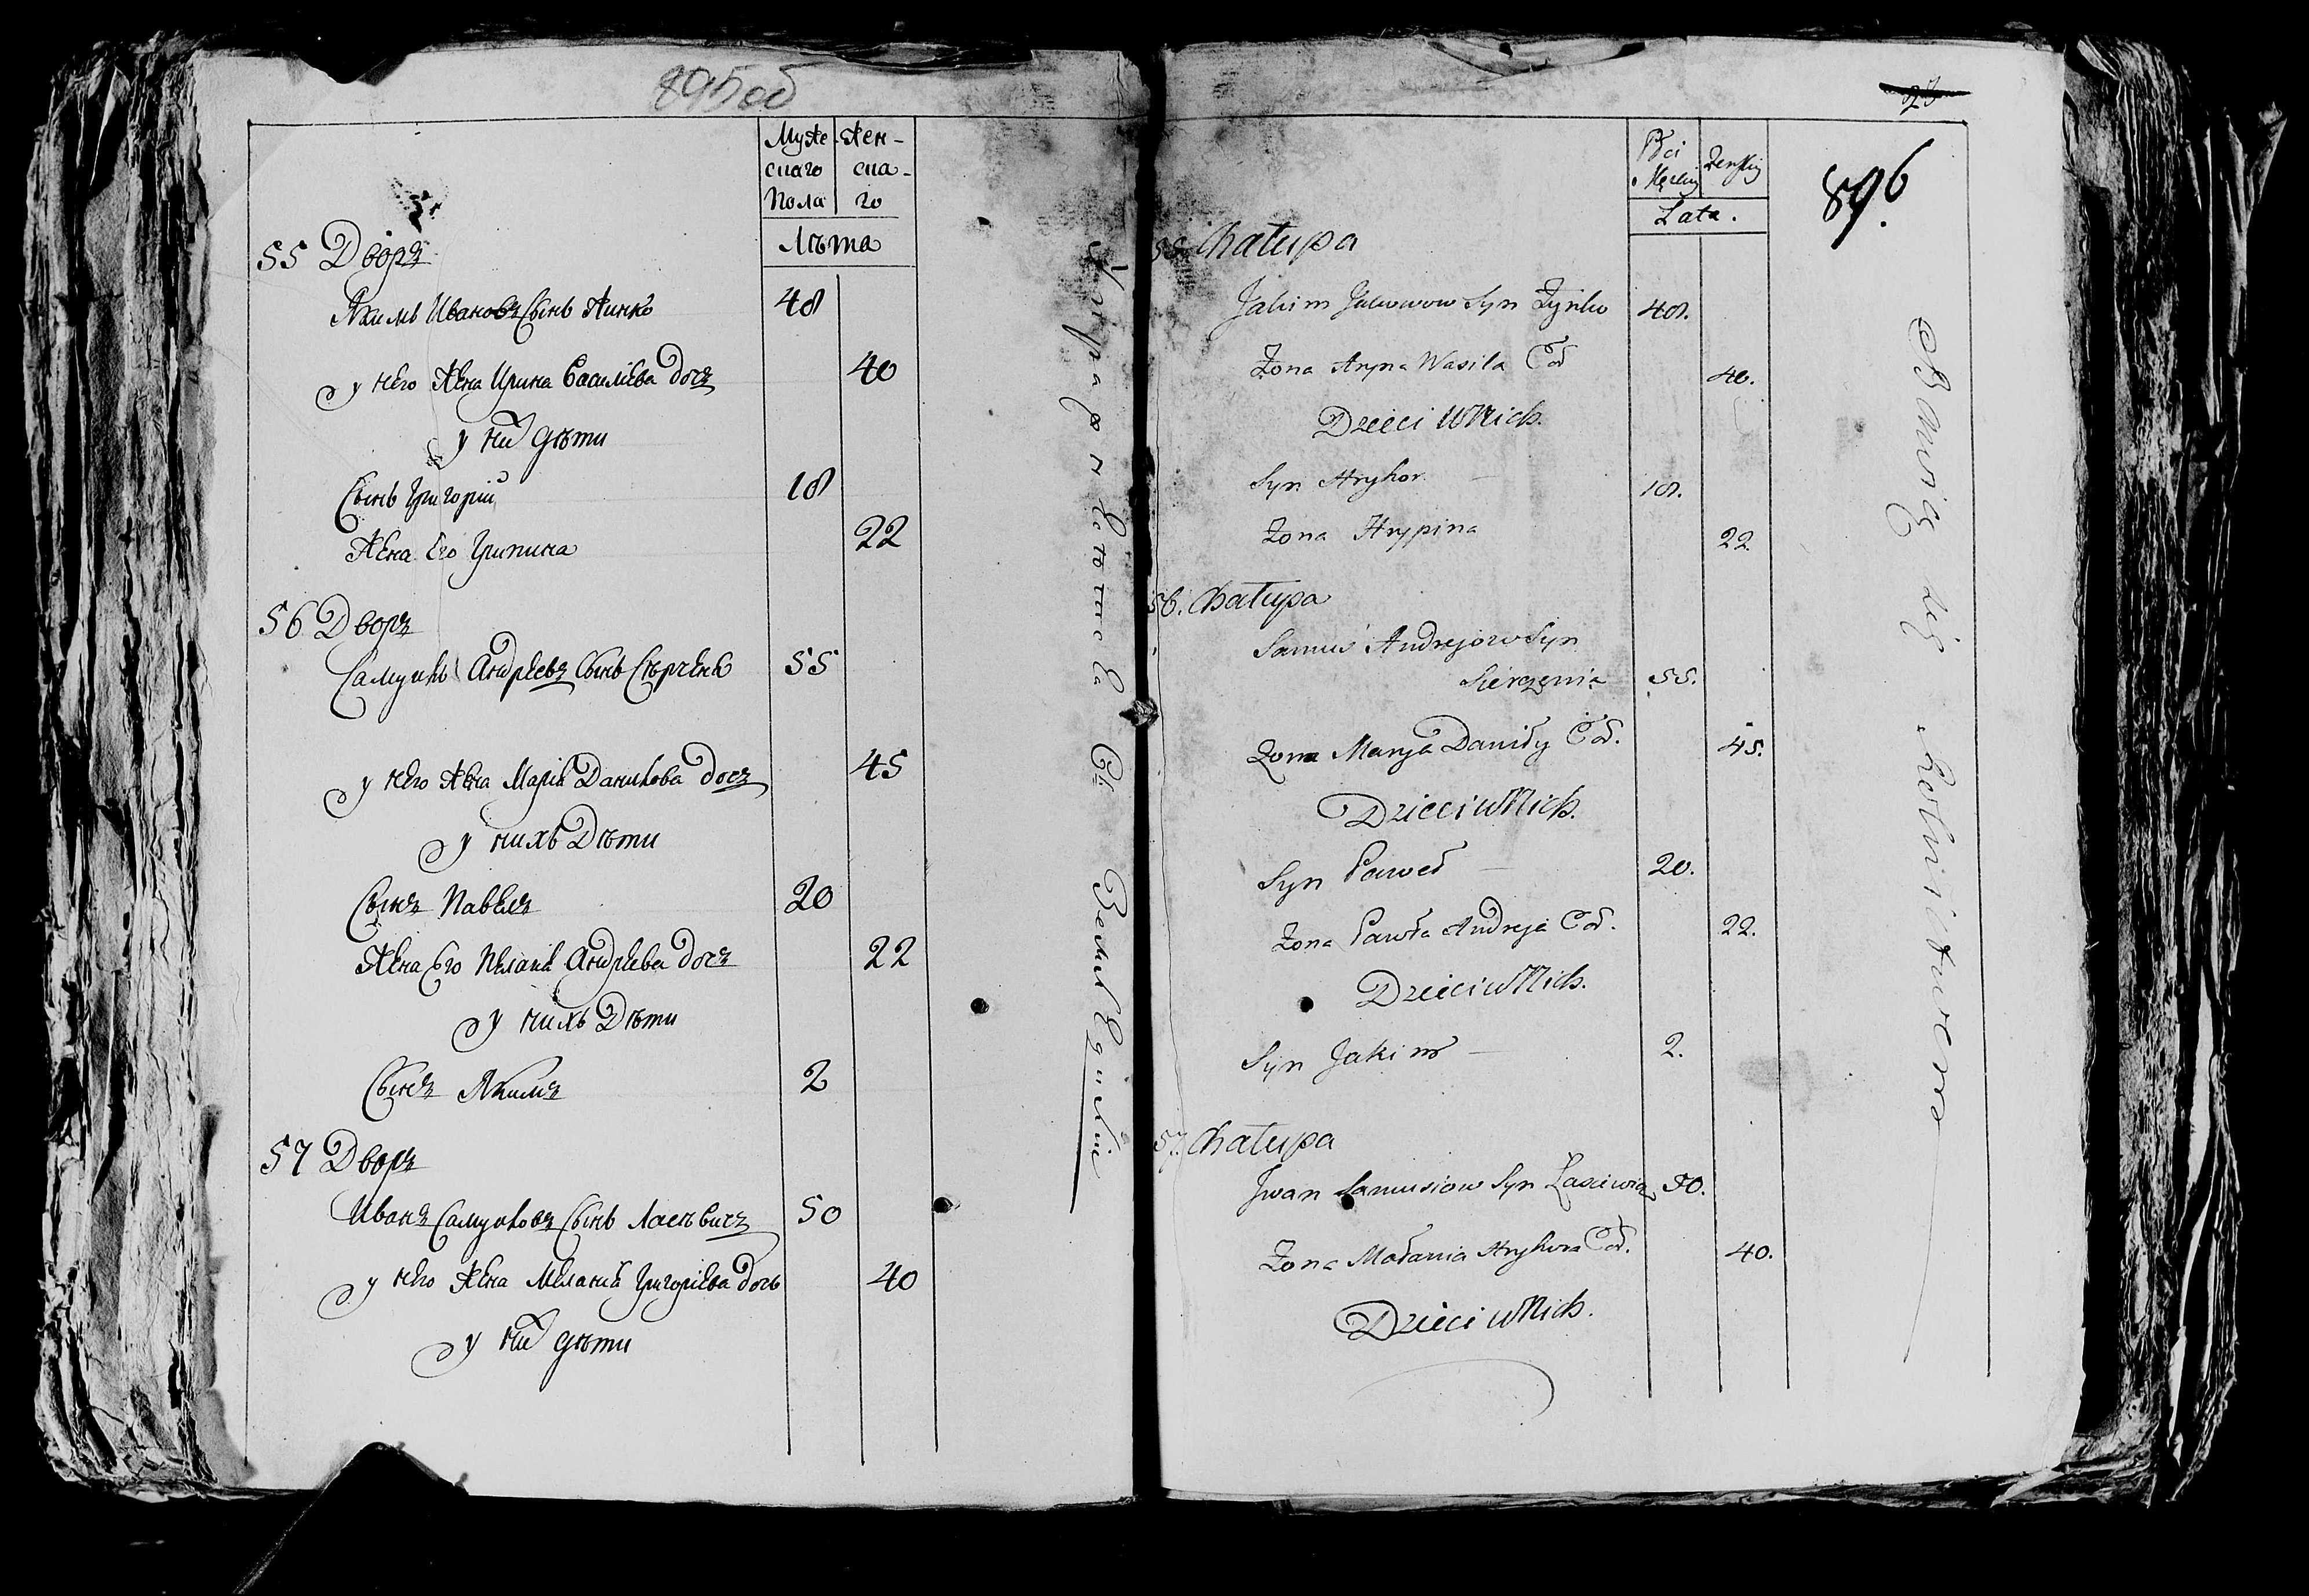 895об
Муже-
скаго
Пола
Жен-
ска-
го
Лѣта
55 Дворъ
Якимъ Ивановъ Сынъ Жинко 48
у него Жена Ирина Василiева дочь 40
у них дѣти
Сынъ Григорiй 18
Жена Его Грипина 22
56 Дворъ
Самуилъ Андреевъ Сынъ Сѣрченя 55
у него Жена Марiя Данилова дочъ 45
у нихъ Дѣти
Сынъ Павелъ 20
Жена Его Андреева дочъ 22
у нихъ Дѣти
Сынъ Якимъ 2
57 Дворъ
Иванъ Самуиловъ Сынъ Ласѣвичъ 50
у него Жена Меланiя Григорiева дочь 40
у них дѣти
23
896
Płci
Męzkiy
Zenskiy
Lata.
55. Chałupa
Jakim Syn Zynko 48.
Zona Aryna Wasila Cor 40.
Dzieci w Nich.
Syn Hryhor 18.
Zona Hrypina 22
56. Chałupa
Samuś Andrejow Syn
Sierczenia 55.
Zona Marya Daniły Cor. 45.
Dzieci w Nich.
Syn Paweł 20.
Zona Pawła Andreja Cor. 22.
Dzieci w Nich.
Syn Jakim 2.
57. Chałupa
Jwan Samusiow Syn 50.
Zona Mołania Hryhora Cor. 40.
Dzieci w Nich.